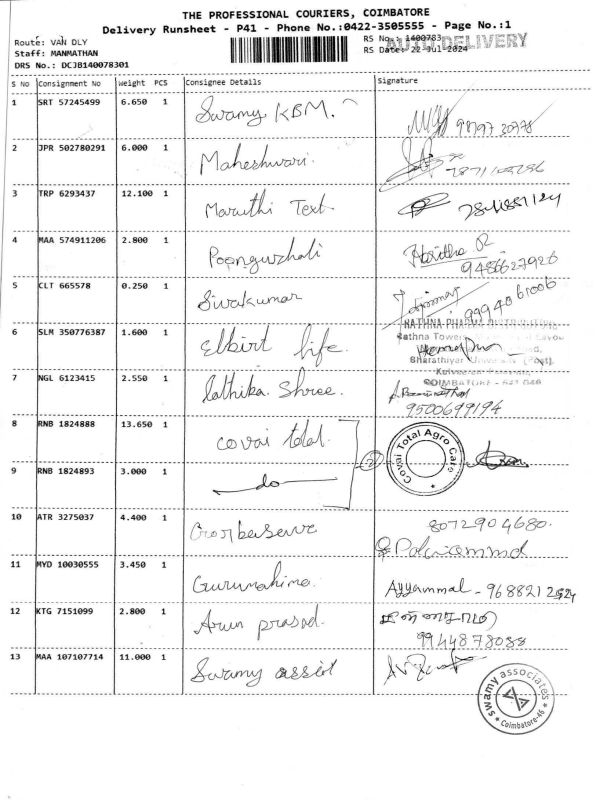 THE PROFESSIONAL COURIERS, COIMBATORE
Delivery Runsheet - P41 - Phone No.:0422-3505555 - Page No.:1
Route: VAN DLY
RS No.: 1400783
AUTO DELIVERY
Staff: MANMATHAN
RS Date: 22-Jul-2024
DRS No.: DCJB140078301
S No Consignment No Weight PCS Consignee Details Signature
1 SRT 57245499 6.650 1 Swamy KBM.
2 JPR 502780291 6.000 1 Maheshwari.
3 TRP 6293437 12.100 1 Maruthi Text.
4 MAA 574911206 2.800 1 Poonguzhali Haritha R
9486627926
5 CLT 665578 0.250 1 Sivakumar 9994061006
RATHNA PHARMA DISTRIBUTORS
Rathna Tower
6 SLM 350776387 1.600 1 Elbirt life.
Bharathiyar University (Post),
7 NGL 6123415 2.550 1 Lathika Shree.
COIMBATORE - 641 046
9500699194
8 RNB 1824888 13.650 1 covai total (2) Covai Total Agro Care
9 RNB 1824893 3.000 1 do
10 ATR 3275037 4.400 1 8072904680.
11 MYD 10030555 3.450 1 Gurumahima. Ayyammal - 9688212524
12 KTG 7151099 2.800 1 Arun prasad.
9944878088
13 MAA 107107714 11.000 1 Swamy assist
swamy associates
Coimbatore-46